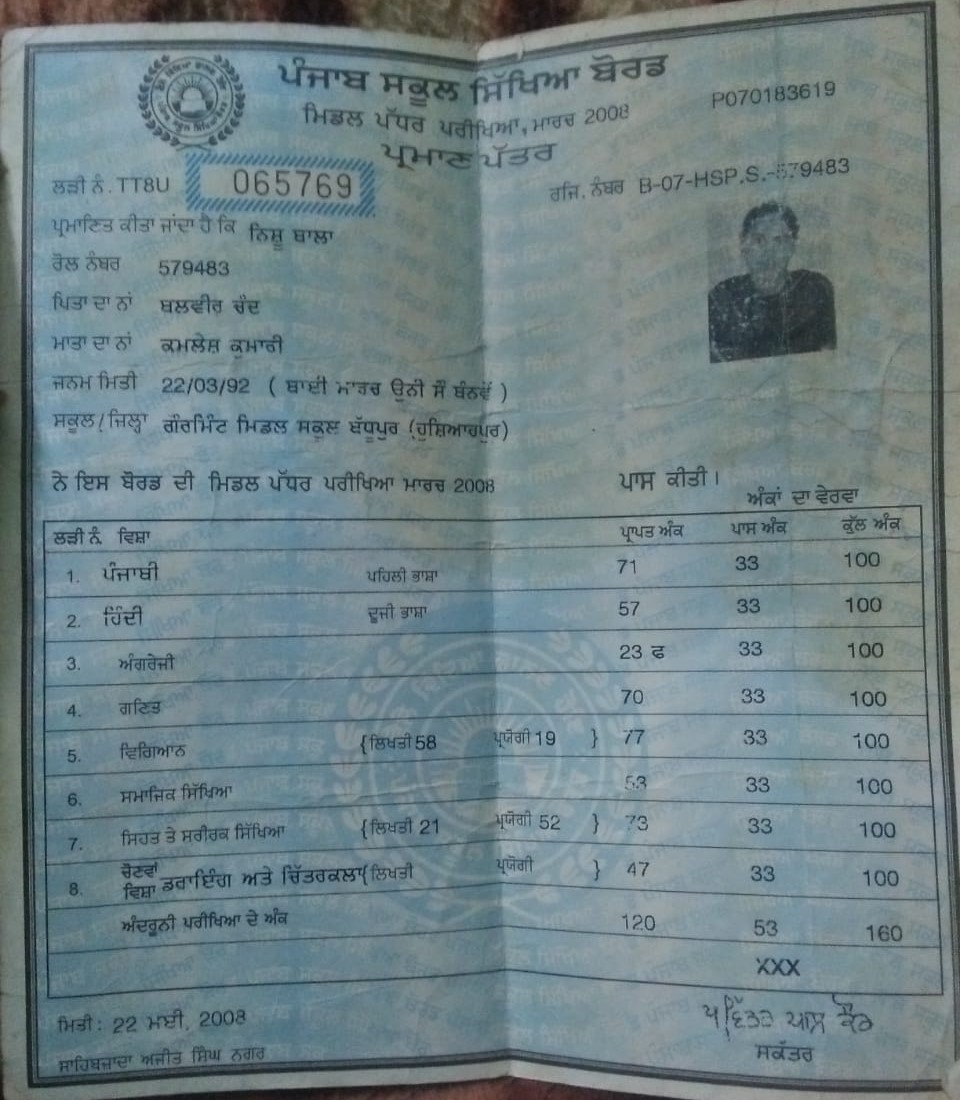 ਪੰਜਾਬ ਸਕੂਲ ਸਿੱਖਿਆ ਬੋਰਡ
ਮਿਡਲ ਪੱਧਰ ਪਰੀਖਿਆ, ਮਾਰਚ 2008
P070183619
ਪ੍ਰਮਾਣ ਪੱਤਰ
ਲੜੀ ਨੰ. TT8U 065769
ਰਜਿ. ਨੰਬਰ B-07-HSP.S.-579483
ਪ੍ਰਮਾਣਿਤ ਕੀਤਾ ਜਾਂਦਾ ਹੈ ਕਿ ਨਿਸ਼ੂ ਬਾਲਾ
ਰੋਲ ਨੰਬਰ 579483
ਪਿਤਾ ਦਾ ਨਾਂ ਬਲਵੀਰ ਚੰਦ
ਮਾਤਾ ਦਾ ਨਾਂ ਕਮਲੇਸ਼ ਕੁਮਾਰੀ
ਜਨਮ ਮਿਤੀ 22/03/92 ( ਬਾਈ ਮਾਰਚ ਉਨੀ ਸੌ ਬੰਨਵੇਂ )
ਸਕੂਲ/ਜ਼ਿਲ੍ਹਾ ਗੌਰਮਿੰਟ ਮਿਡਲ ਸਕੂਲ ਬੱਧੂਪੁਰ (ਹੁਸ਼ਿਆਰਪੁਰ)
ਨੇ ਇਸ ਬੋਰਡ ਦੀ ਮਿਡਲ ਪੱਧਰ ਪਰੀਖਿਆ ਮਾਰਚ 2008 ਪਾਸ ਕੀਤੀ।
ਅੰਕਾਂ ਦਾ ਵੇਰਵਾ
ਲੜੀ ਨੰ. ਵਿਸ਼ਾ ਪ੍ਰਾਪਤ ਅੰਕ ਪਾਸ ਅੰਕ ਕੁੱਲ ਅੰਕ
1. ਪੰਜਾਬੀ ਪਹਿਲੀ ਭਾਸ਼ਾ 71 33 100
2. ਹਿੰਦੀ ਦੂਜੀ ਭਾਸ਼ਾ 57 33 100
3. ਅੰਗਰੇਜੀ 23 ਫ 33 100
4. ਗਣਿਤ 70 33 100
5. ਵਿਗਿਆਨ {ਲਿਖਤੀ 58 ਪ੍ਰਯੋਗੀ 19 } 77 33 100
6. ਸਮਾਜਿਕ ਸਿੱਖਿਆ 53 33 100
7. ਸਿਹਤ ਤੇ ਸਰੀਰਕ ਸਿੱਖਿਆ {ਲਿਖਤੀ 21 ਪ੍ਰਯੋਗੀ 52 } 73 33 100
8. ਚੋਣਵਾਂ ਵਿਸ਼ਾ ਡਰਾਇੰਗ ਅਤੇ ਚਿੱਤਰਕਲਾ {ਲਿਖਤੀ ਪ੍ਰਯੋਗੀ } 47 33 100
ਅੰਦਰੂਨੀ ਪਰੀਖਿਆ ਦੇ ਅੰਕ 120 53 160
XXX
ਮਿਤੀ: 22 ਮਈ, 2008
ਪਵਿੱਤਰ ਪਾਲ ਕੌਰ
ਸਾਹਿਬਜ਼ਾਦਾ ਅਜੀਤ ਸਿੰਘ ਨਗਰ
ਸਕੱਤਰ